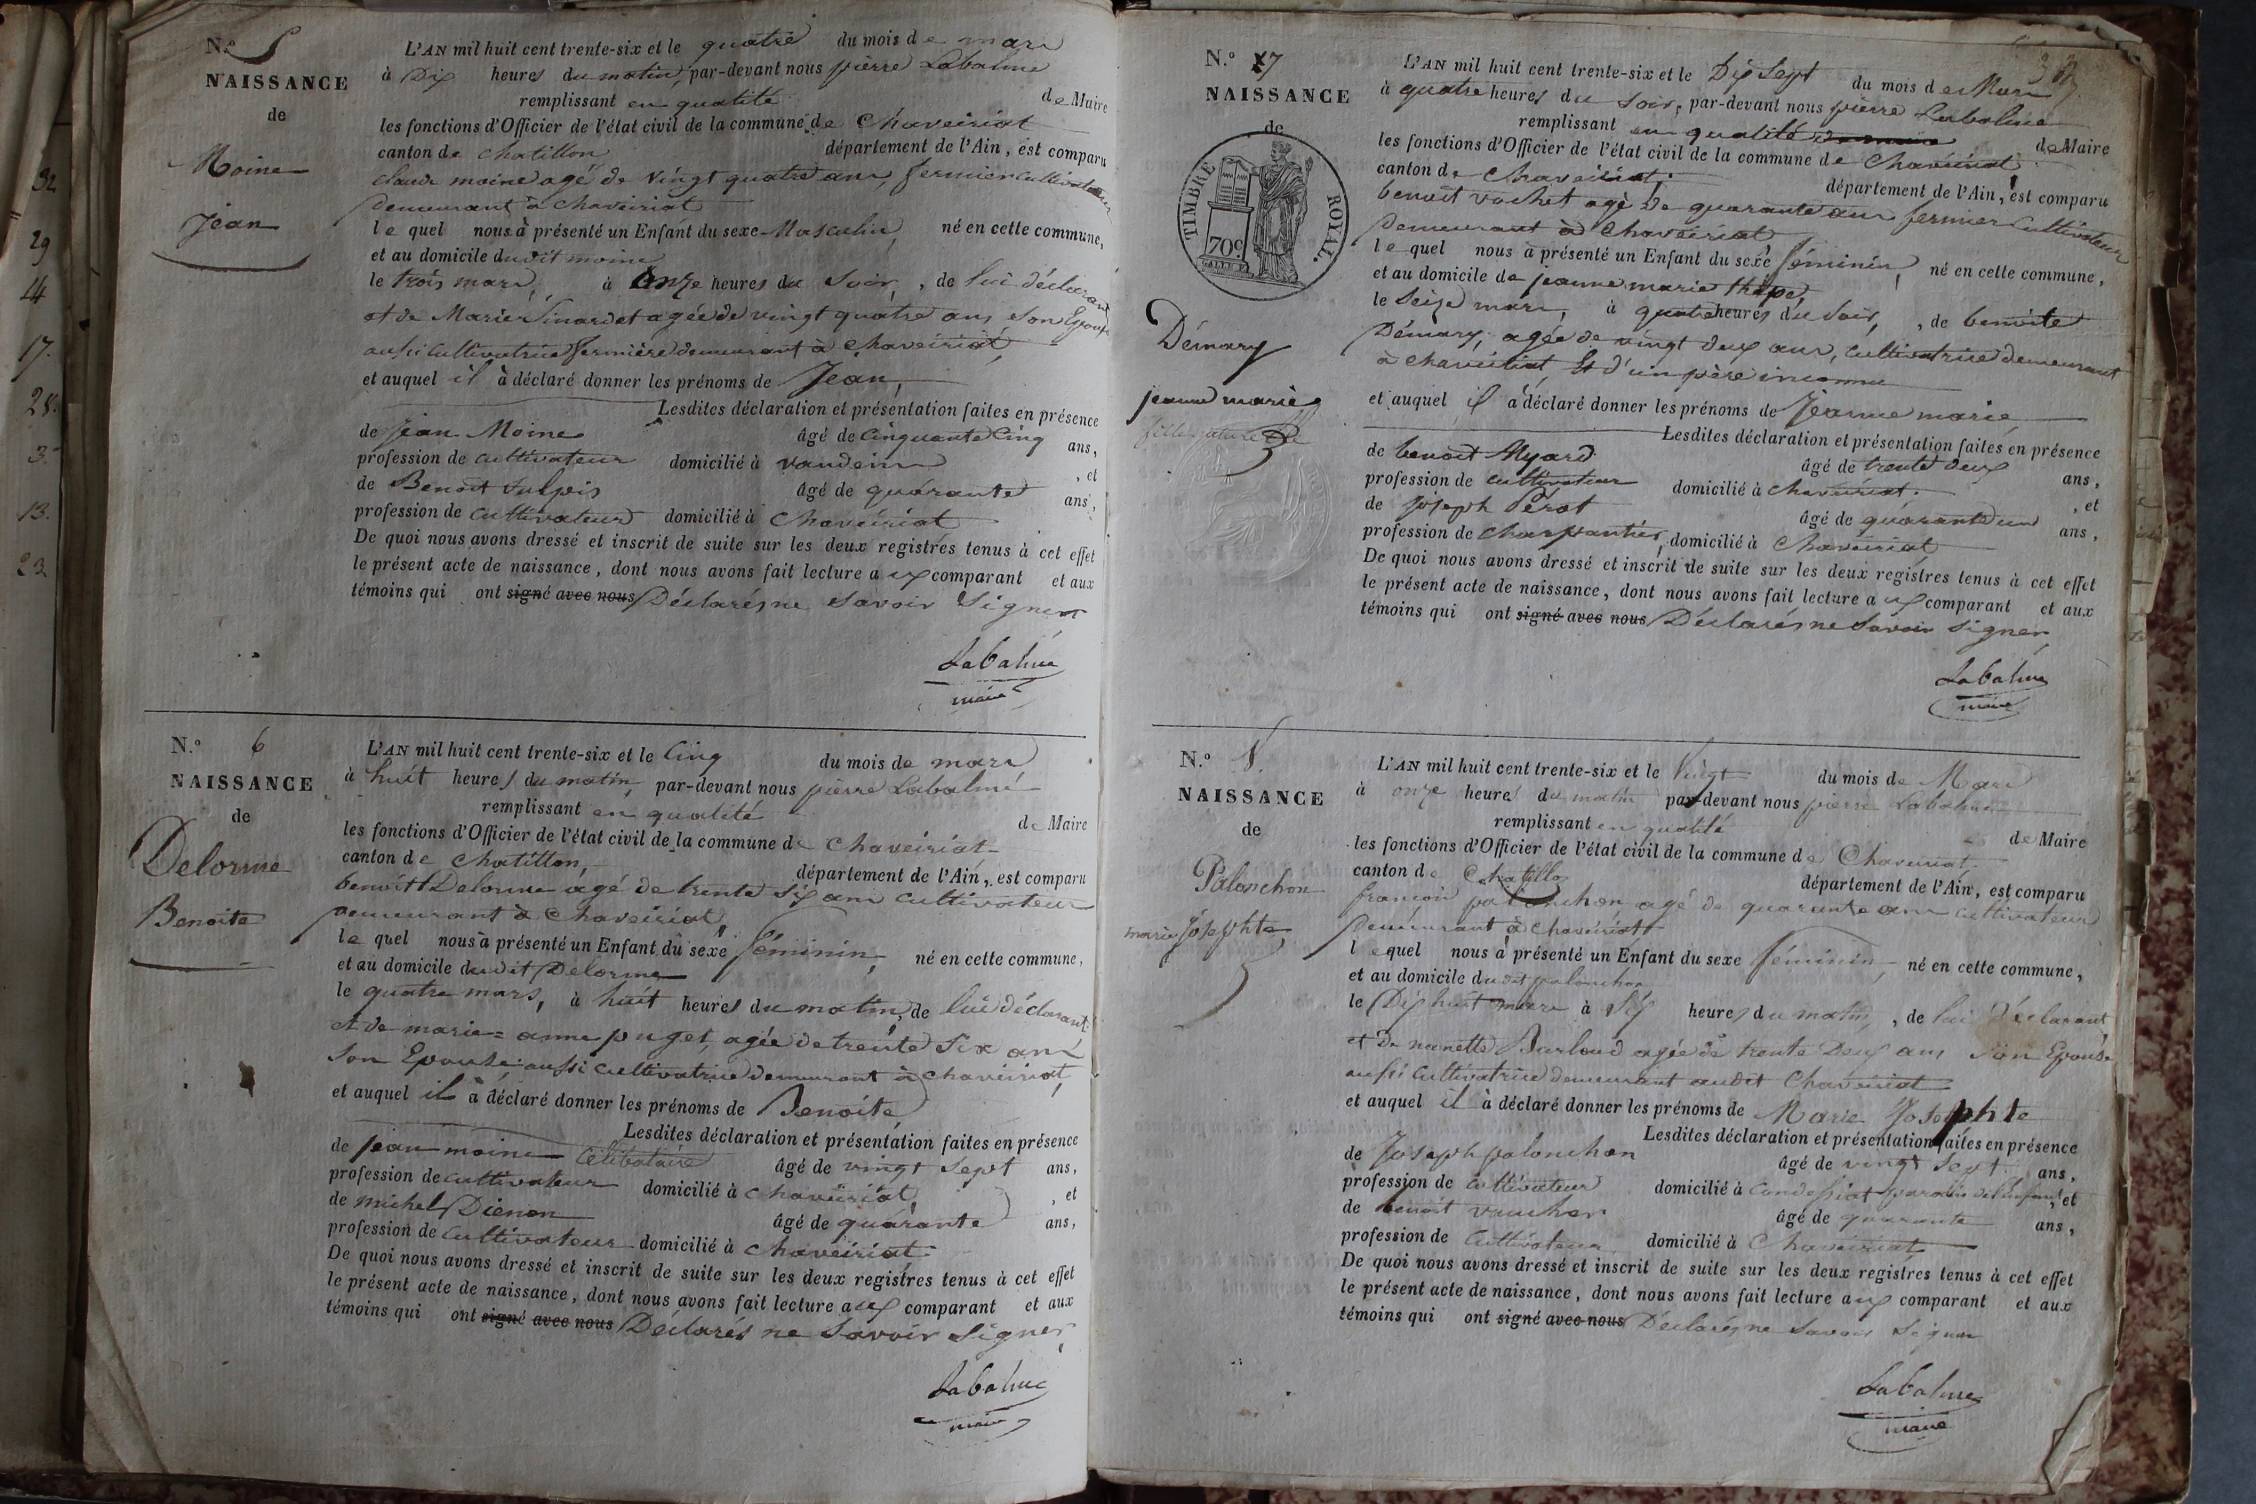 32
29
14
17.
28.
3.
13.
23
N.o 5
NAISSANCE
de
Moine
Jean
L'AN mil huit cent trente-six et le quatre du mois de mars
à Dix heures du matin, par-devant nous pierre Labalme
remplissant en qualité de Maire
les fonctions d'Officier de l'état civil de la commune de Chaveiriat
canton de Chatillon département de l'Ain, est comparu
claude moine agé de vingt quatre ans, fermier cultivateur
demeurant à Chaveiriat
le quel nous à présenté un Enfant du sexe Masculin, né en cette commune,
et au domicile dudit moine
le trois mars, à onze heures du soir, de lui déclarant
et de Marie Sinardet agée de vingt quatre ans son Epouse
aussi cultivatrice fermière demeurant à Chaveiriat
et auquel il à déclaré donner les prénoms de Jean,
Lesdites déclaration et présentation faites en présence
de Jean Moine âgé de Cinquante Cinq ans,
profession de cultivateur domicilié à vandeins , et
de Benoit Sulpis âgé de quarante ans,
profession de cultivateur domicilié à Chaveiriat
De quoi nous avons dressé et inscrit de suite sur les deux registres tenus à cet effet
le présent acte de naissance, dont nous avons fait lecture aux comparant et aux
témoins qui ont signé avec nous Déclarés ne savoir signer
Labalme
maire
N.o 6
NAISSANCE
de
Delorme
Benoite
L'AN mil huit cent trente-six et le Cinq du mois de mars
à huit heures du matin, par-devant nous pierre Labalme
remplissant en qualité de Maire
les fonctions d'Officier de l'état civil de la commune de Chaveiriat
canton de Chatillon, département de l'Ain, est comparu
benoit Delorme agé de trente six ans cultivateur
demeurant à Chaveiriat
le quel nous à présenté un Enfant du sexe féminin, né en cette commune,
et au domicile dudit Delorme
le quatre mars, à huit heures du matin, de lui déclarant
et de marie=anne puget, agée de trente six ans
son Epouse aussi cultivatrice demeurant à Chaveiriat
et auquel il à déclaré donner les prénoms de Benoite
Lesdites déclaration et présentation faites en présence
de jean moine Célibataire âgé de vingt sept ans,
profession de cultivateur domicilié à Chaveiriat , et
de michel Dienon âgé de quarante ans,
profession de cultivateur domicilié à Chaveiriat
De quoi nous avons dressé et inscrit de suite sur les deux registres tenus à cet effet
le présent acte de naissance, dont nous avons fait lecture aux comparant et aux
témoins qui ont signé avec nous Déclarés ne savoir signer
Labalme
maire
N.o 7
NAISSANCE
de
TIMBRE ROYAL.
70c
Démary
jeanne marie
fille naturelle
L'AN mil huit cent trente-six et le Dix Sept du mois de Mars
à quatre heures du soir, par-devant nous pierre Labalme
remplissant en qualité de Maire
les fonctions d'Officier de l'état civil de la commune de Chaveiriat
canton de Chaveiriat département de l'Ain, est comparu
benoit vochet agé de quarante ans fermier cultivateur
demeurant à Chaveiriat
le quel nous à présenté un Enfant du sexe féminin, né en cette commune,
et au domicile de jeanne marie
le seize mars, à quatre heures du soir, , de benoite
Démary, agée de vingt deux ans, cultivatrice demeurant
à Chaveiriat Et d'un père inconnu
et auquel il à déclaré donner les prénoms de Jeanne marie
Lesdites déclaration et présentation faites en présence
de benoit Myard âgé de trente deux ans,
profession de cultivateur domicilié à Chaveiriat , et
de joseph Pérat âgé de quarante un ans,
profession de charpantier, domicilié à Chaveiriat
De quoi nous avons dressé et inscrit de suite sur les deux registres tenus à cet effet
le présent acte de naissance, dont nous avons fait lecture aux comparant et aux
témoins qui ont signé avec nous Déclarés ne savoir signer
Labalme
maire
N.o 8.
NAISSANCE
de
Palonchon
marie Josephte
L'AN mil huit cent trente-six et le Vingt du mois de Mars
à onze heures du matin par-devant nous pierre Labalme
remplissant en qualité de Maire
les fonctions d'Officier de l'état civil de la commune de Chaveiriat
canton de Chatillon département de l'Ain, est comparu
francois palonchon agé de quarante ans cultivateur
demeurant à Chaveiriat
lequel nous à présenté un Enfant du sexe féminin, né en cette commune,
et au domicile dudit palonchon
le Dix huit mars à Six heures du matin, , de lui Déclarant
et de nanette Barloud agée de trente Deux ans son Epouse
aussi cultivatrice demeurant audit Chaveiriat
et auquel il à déclaré donner les prénoms de Marie Josephte
Lesdites déclaration et présentation faites en présence
de Joseph palonchon âgé de vingt sept ans,
profession de cultivateur domicilié à Condessiat de l'enfant, et
de benoit vaucher âgé de quarante ans,
profession de Cultivateur domicilié à Chaveiriat
De quoi nous avons dressé et inscrit de suite sur les deux registres tenus à cet effet
le présent acte de naissance, dont nous avons fait lecture aux comparant et aux
témoins qui ont signé avec nous Déclarés ne savoir signer
Labalme
maire